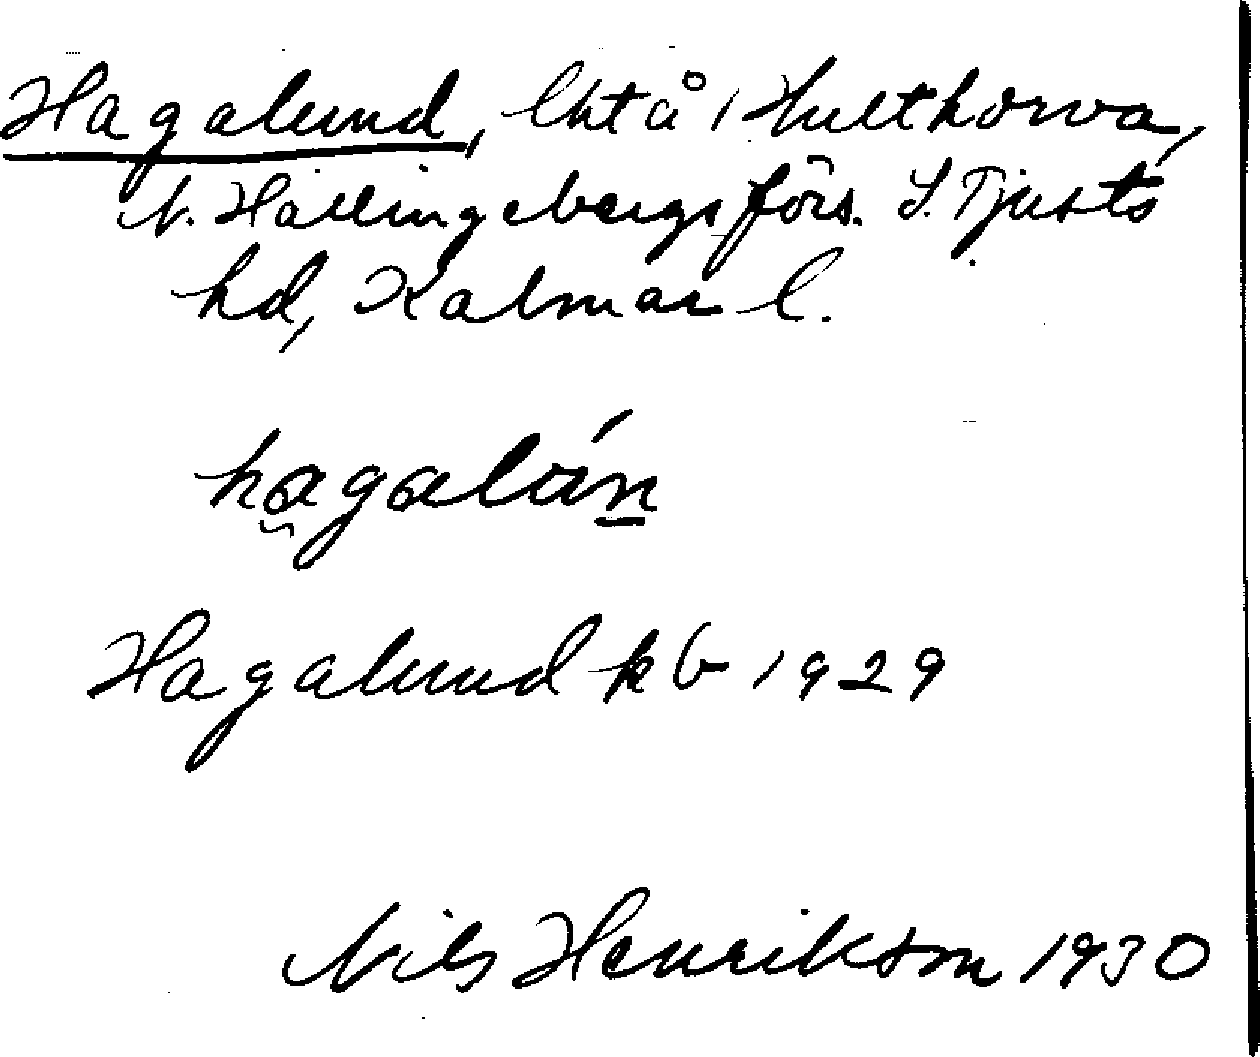 Hagalund, lht å 1 Hulthorva,
V. Hallingebergs förs. S. Tjusts
hd, Kalmar l.
hagalún
Hagalund kb 1929
Nils Henrikson 1930